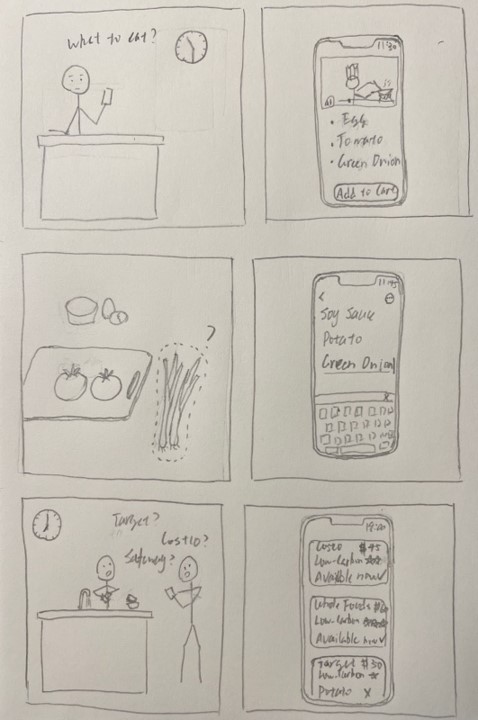 What to eat?
11:30
• Egg
• Tomato
• Green Onion
Add to Cart
?
11:45
<
Soy Sauce
Potato
Green Onion
x
Target?
Costco?
Safeway?
Costco $45
Low-Carbon
Available now ✓
Whole Foods
Low-Carbon
Available now ✓
Target $50
Low-Carbon
Potato x